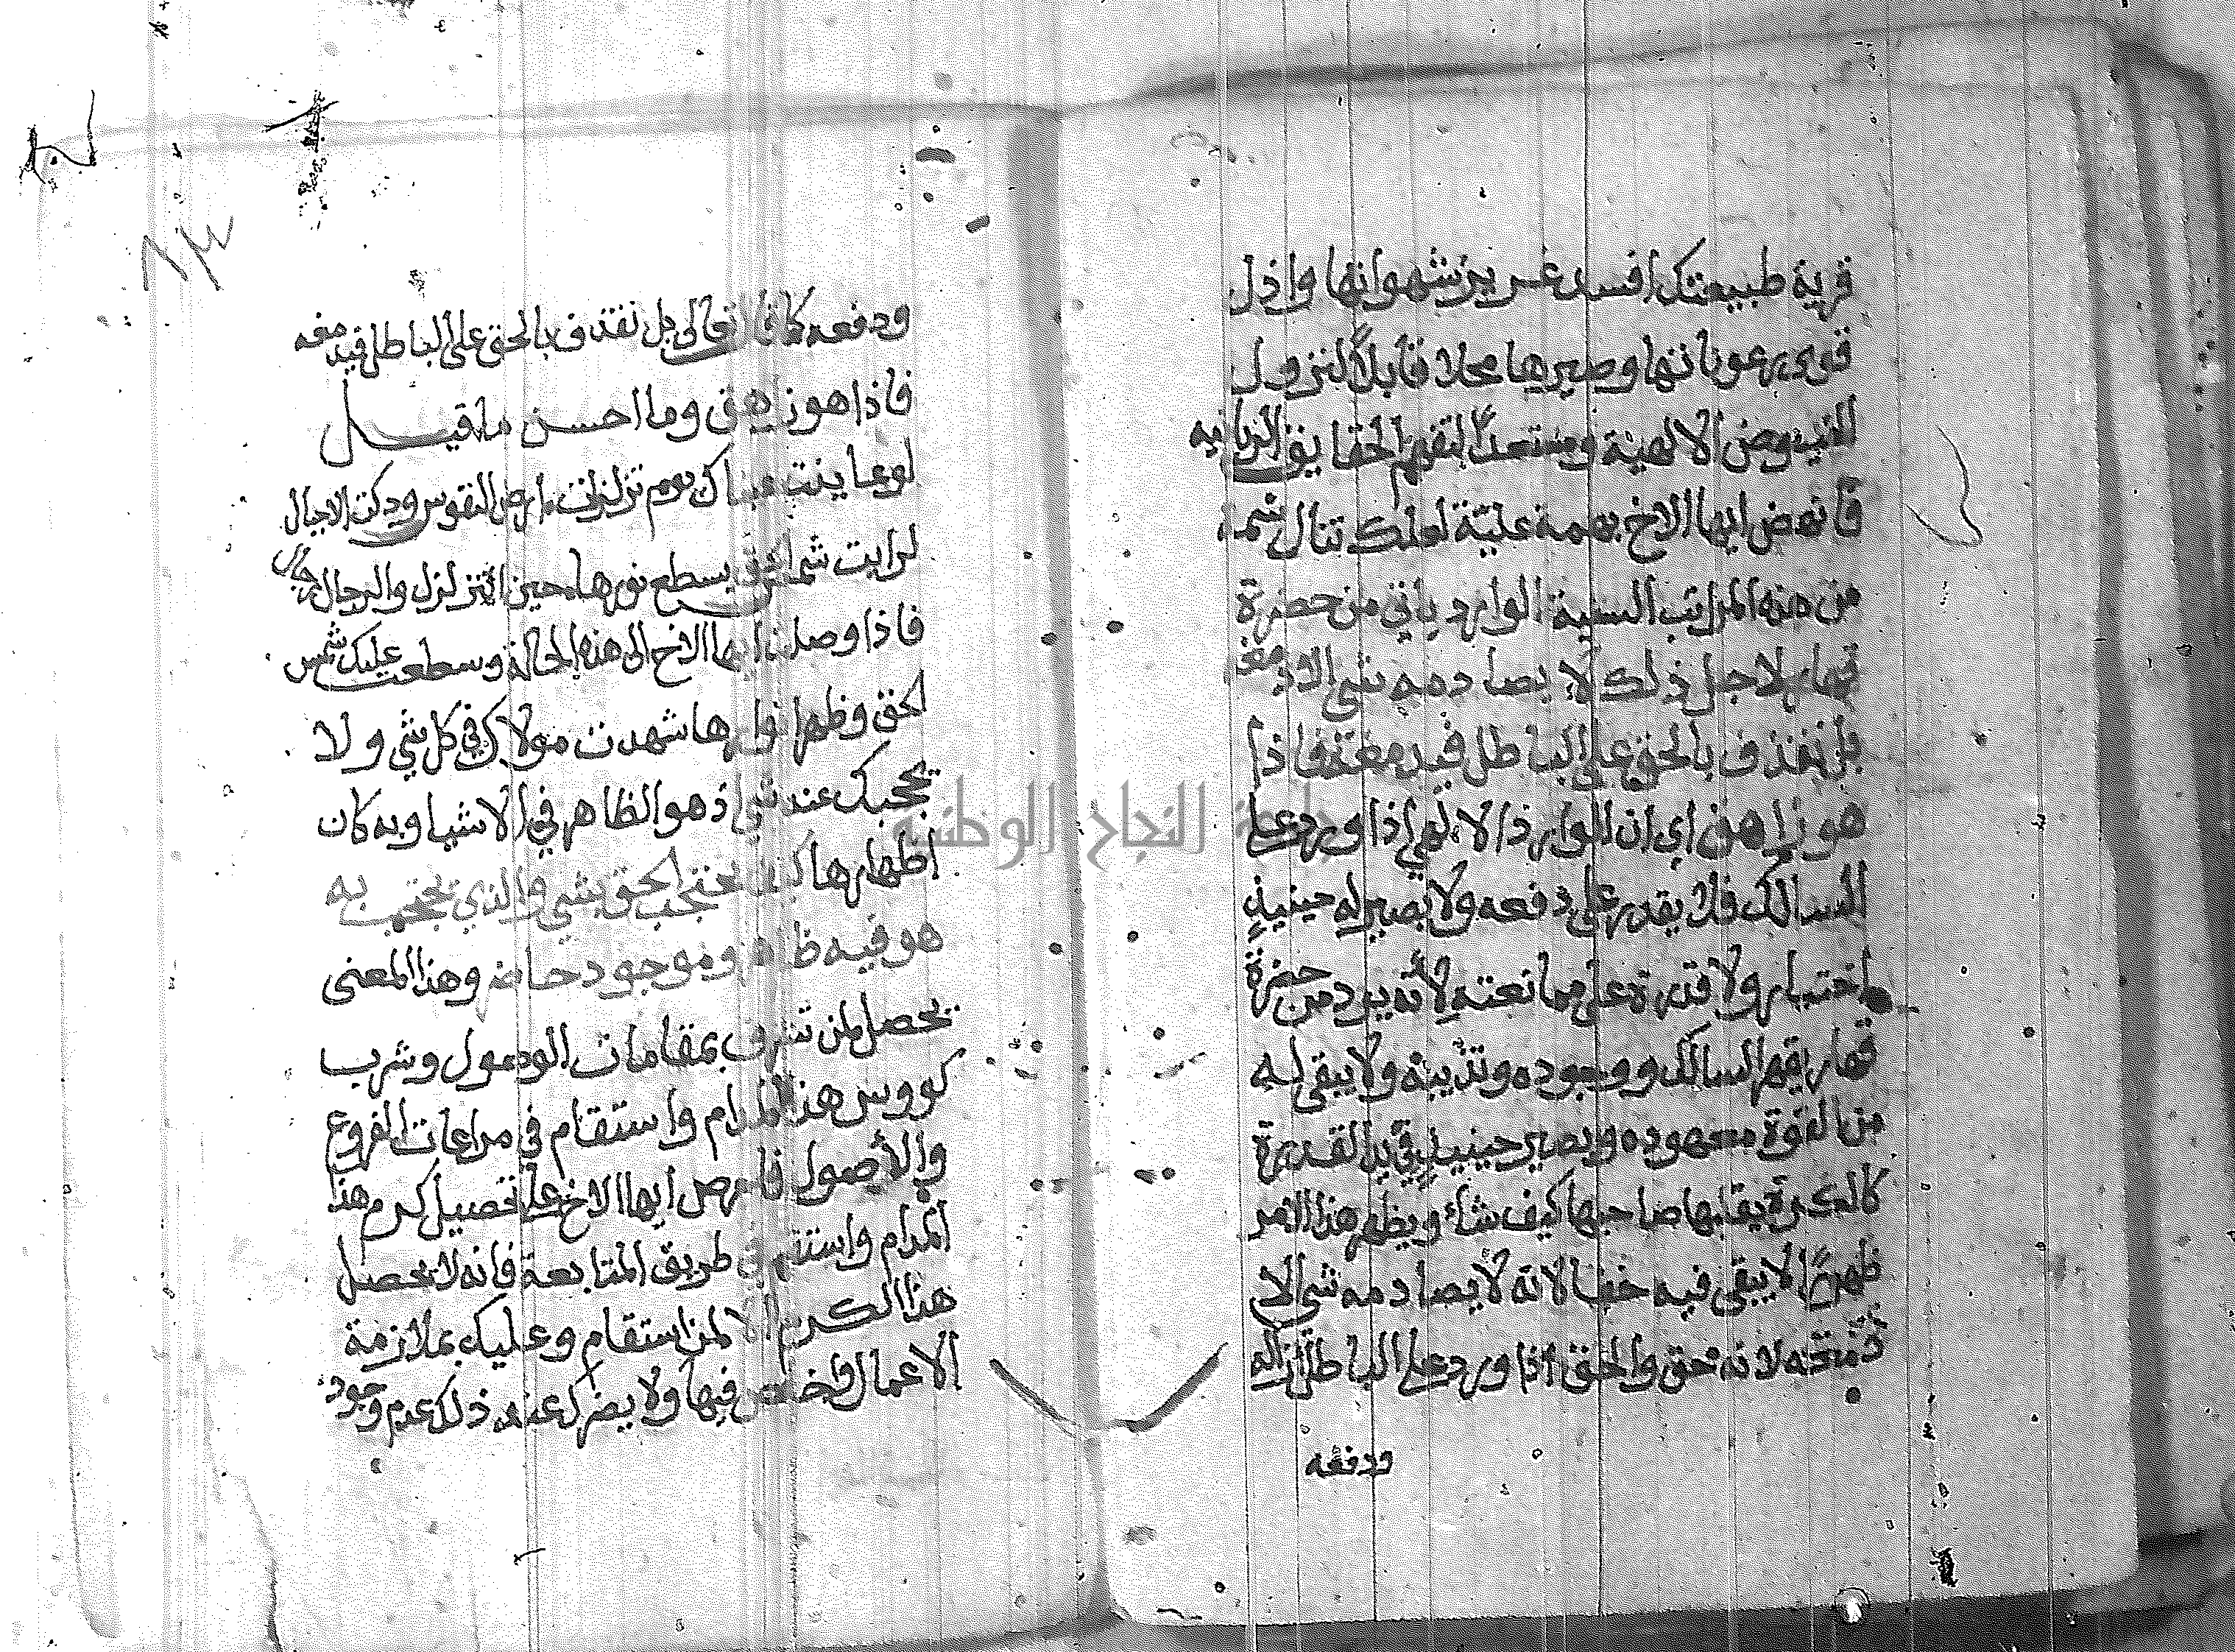 قرية طبيعتك افسد عزيز شهواتها واذل
قوى رعوناتها وصيرها محلا قابلاً لنزول
الفيوض الالهية ومستعداً لتفهم الحقايق الربانيه
فانهض ايها الاخ بهمة عليّة لعلك تنال شمة
من هذه المراتب السنية الوارد ياتي من حضرة
قهار لاجل ذلك لا يصادمه شي الا دمغه
بل نقذف بالحق على الباطل فيدمغه فاذا
هو زاهق اي ان الوارد الالهي اذا ورد على
السالك فلا يقدر على دفعه ولا يصير له حينيذٍ
اختيار ولا قدرة على ممانعته لأنه يرد من حضرة
قهار يقهر السالك ووجوده وتذيبه ولا يبقى له
من القوة معهوده ويصير حينيذٍ في يد القدرة
كالكرة يقلبها صاحبها كيف شاء ويظهر هذا الامر
ظهوراً لا يبقى فيه خفا لانه لا يصادمه شي الا
دمغه لانه حق والحق اذا ورد على الباطل ازاله
ودفعه
ودفعه كما قال تعالى بل نقذف بالحق على الباطل فيدمغه
فاذا هو زاهق وما احسن ما قيل
لو عاينت عيناك يوم تزلزلت ارض النفوس ودكت الاجبال
لرايت شمس الحق يسطع نورها حين التزلزل والرجال رجال
فاذا وصلت ايها الاخ الى هذه الحالة وسطعت عليك شمس
الحق وظهر انوارها شهدت مولاك في كل شي ولا
يحجبك عنه شي اذ هو الظاهر في الاشيا وبه كان
اظهارها كيف يحتجب الحق بشي والذي يحتجب به
هو فيه ظاهر وموجود حاضر وهذا المعنى
يحصل لمن تشرف بمقامات الوصول وشرب
كووس هذا المدام واستقام في مراعات الفروع
والأصول فاحرص ايها الاخ على تحصيل كرم هذا
المدام واستقم في طريق المتابعة فانه لا يحصل
هذا الكرم الا لمن استقام وعليك بملازمة
الاعمال والاخلاص فيها ولا يضرك عند ذلك عدم وجود
جامعة النجاح الوطنية